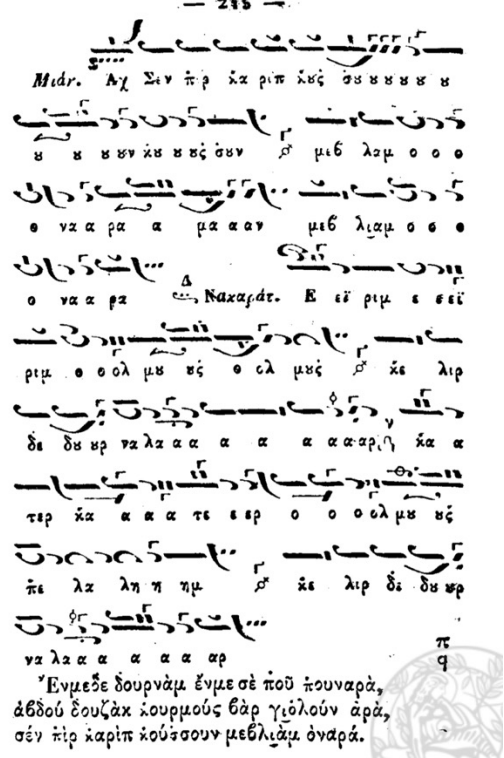 — 245 —
Μιάν. Ἀχ Σεν πὶρ κα ριπ κοὺς σου ου ου ου ου ου
ου ου ουν κου ου οὺς σουν μεβ λαμ ο ο ο
ο να α ρα α μα α αν μεβ λιαμ ο ο ο
ο να α ρα Νακαράτ. Ε εϊ ριμ ε σεϊ
ριμ ο ο ολ μου οὺς ο ολ μοὺς κε λιρ
δε δου ουρ να λα α α α α α α α αρ κα α
τερ κα α α α τε ε ερ ο ο ο ολ μου οὺς
πε λα λη η ημ κε λιρ δε δου ουρ
να λα α α α α α αρ
Ἐνμεδε δουρνὰμ ἔνμε σὲ ποῦ πουναρὰ,
ἀβδοὺ δουζὰκ κουρμοὺς βὰρ γιολοὺν ἀρὰ,
σέν πὶρ καρὶπ κούσσουν μεβλιὰμ ὀναρά.